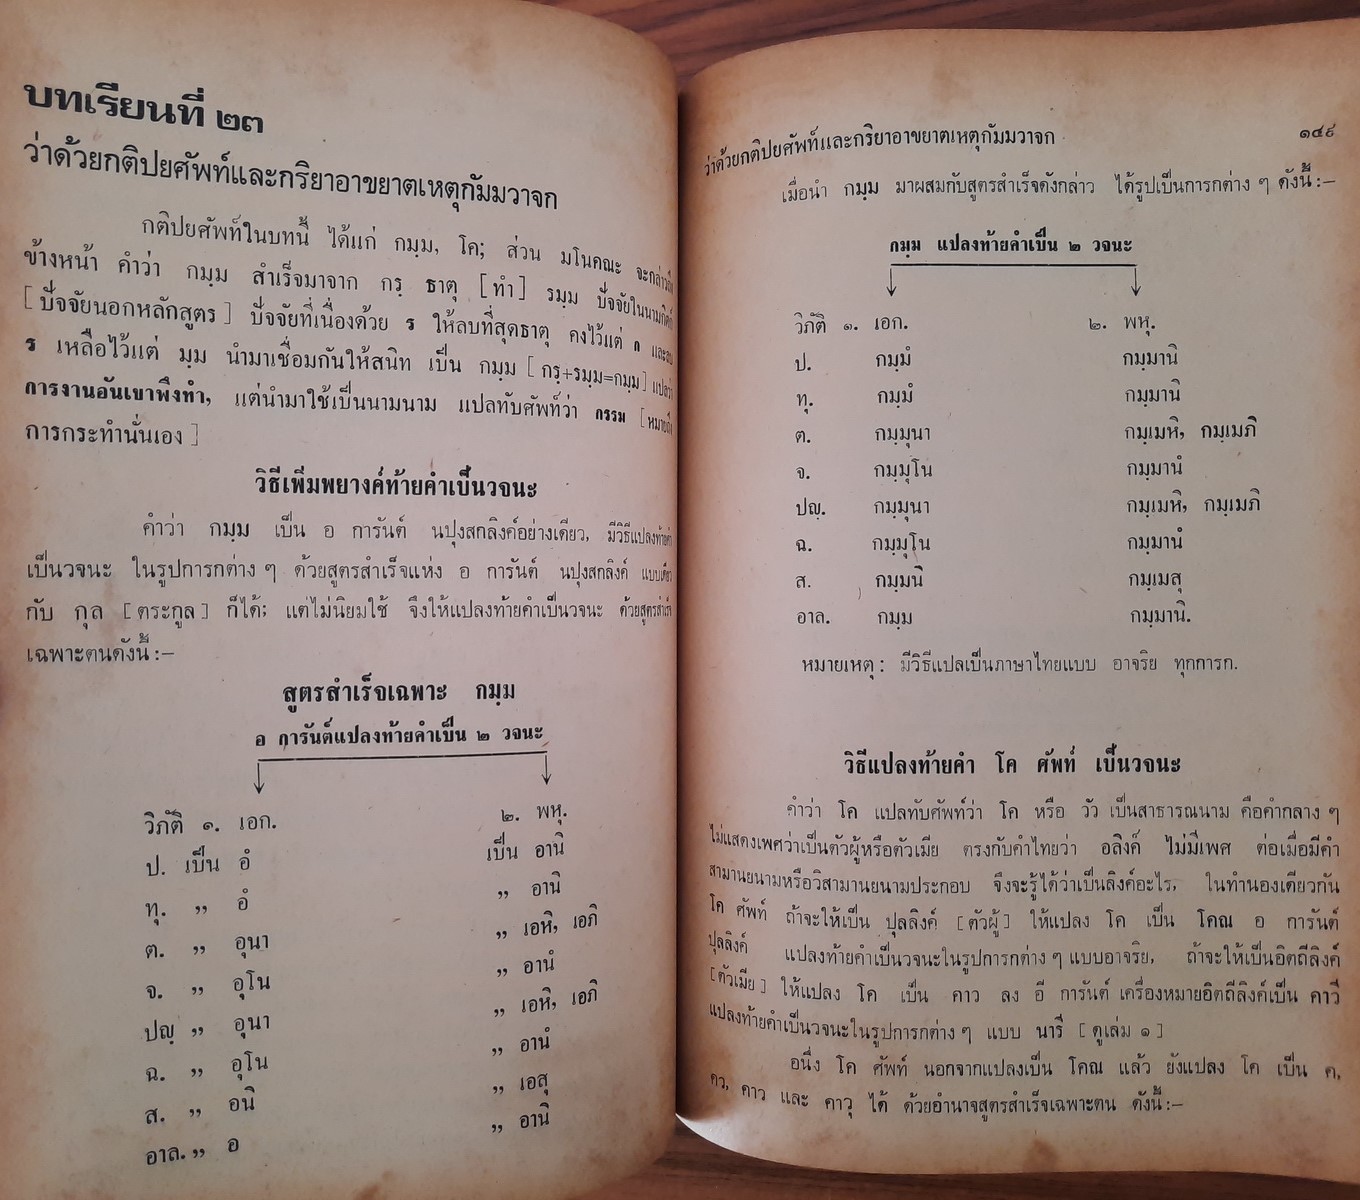 บทเรียนที่ ๒๓
ว่าด้วยกติปยศัพท์และกริยาอาขยาตเหตุกัมมวาจก
กติปยศัพท์ในบทนี้ ได้แก่ กมฺม, โค; ส่วน มโนคณะ จะกล่าว
ข้างหน้า คำว่า กมฺม สำเร็จมาจาก กรฺ ธาตุ [ทำ] รมฺม ปัจจัยในนามกิตก์
[ปัจจัยนอกหลักสูตร] ปัจจัยที่เนื่องด้วย ร ให้ลบที่สุดธาตุ คงไว้แต่ ก และลบ
ร เหลือไว้แต่ มฺม นำมาเชื่อมกันให้สนิท เป็น กมฺม [กรฺ+รมฺม=กมฺม] แปลว่า
การงานอันเขาพึงทำ, แต่นำมาใช้เป็นนามนาม แปลทับศัพท์ว่า กรรม [หมายถึง
การกระทำนั่นเอง]
วิธีเพิ่มพยางค์ท้ายคำเป็นวจนะ
คำว่า กมฺม เป็น อ การันต์ นปุงสกลิงค์อย่างเดียว, มีวิธีแปลงท้ายคำ
เป็นวจนะ ในรูปการกต่าง ๆ ด้วยสูตรสำเร็จแห่ง อ การันต์ นปุงสกลิงค์ แบบเดียว
กับ กุล [ตระกูล] ก็ได้; แต่ไม่นิยมใช้ จึงให้แปลงท้ายคำเป็นวจนะ ด้วยสูตรสำเร็จ
เฉพาะตนดังนี้ :–
สูตรสำเร็จเฉพาะ กมฺม
อ การันต์แปลงท้ายคำเป็น ๒ วจนะ
วิภัติ ๑. เอก. ๒. พหุ.
ป. เป็น อํ เป็น อานิ
ทุ. ,, อํ ,, อานิ
ต. ,, อุนา ,, เอหิ, เอภิ
จ. ,, อุโน ,, อานํ
ปญฺ ,, อุนา ,, เอหิ, เอภิ
ฉ. ,, อุโน ,, อานํ
ส. ,, อนิ ,, เอสุ
อาล. ,, อ ,, อานิ
ว่าด้วยกติปยศัพท์และกริยาอาขยาตเหตุกัมมวาจก ๑๔๙
เมื่อนำ กมฺม มาผสมกับสูตรสำเร็จดังกล่าว ได้รูปเป็นการกต่าง ๆ ดังนี้ :–
กมฺม แปลงท้ายคำเป็น ๒ วจนะ
วิภัติ ๑. เอก. ๒. พหุ.
ป. กมฺมํ กมฺมานิ
ทุ. กมฺมํ กมฺมานิ
ต. กมฺมุนา กมฺเมหิ, กมฺเมภิ
จ. กมฺมุโน กมฺมานํ
ปญฺ. กมฺมุนา กมฺเมหิ, กมฺเมภิ
ฉ. กมฺมุโน กมฺมานํ
ส. กมฺมนิ กมฺเมสุ
อาล. กมฺม กมฺมานิ.
หมายเหตุ : มีวิธีแปลเป็นภาษาไทยแบบ อาจริย ทุกการก.
วิธีแปลงท้ายคำ โค ศัพท์ เป็นวจนะ
คำว่า โค แปลทับศัพท์ว่า โค หรือ วัว เป็นสาธารณนาม คือคำกลาง ๆ
ไม่แสดงเพศว่าเป็นตัวผู้หรือตัวเมีย ตรงกับคำไทยว่า อลิงค์ ไม่มีเพศ ต่อเมื่อมีคำ
สามานยนามหรือวิสามานยนามประกอบ จึงจะรู้ได้ว่าเป็นลิงค์อะไร, ในทำนองเดียวกัน
โค ศัพท์ ถ้าจะให้เป็น ปุลลิงค์ [ตัวผู้] ให้แปลง โค เป็น โคณ อ การันต์
ปุลลิงค์ แปลงท้ายคำเป็นวจนะในรูปการกต่าง ๆ แบบอาจริย, ถ้าจะให้เป็นอิตถีลิงค์
[ตัวเมีย] ให้แปลง โค เป็น คาว ลง อี การันต์ เครื่องหมายอิตถีลิงค์เป็น คาวี
แปลงท้ายคำเป็นวจนะในรูปการกต่าง ๆ แบบ นารี [ดูเล่ม ๑]
อนึ่ง โค ศัพท์ นอกจากแปลงเป็น โคณ แล้ว ยังแปลง โค เป็น ค,
คว, คาว และ คาวุ ได้ ด้วยอำนาจสูตรสำเร็จเฉพาะตน ดังนี้ :–